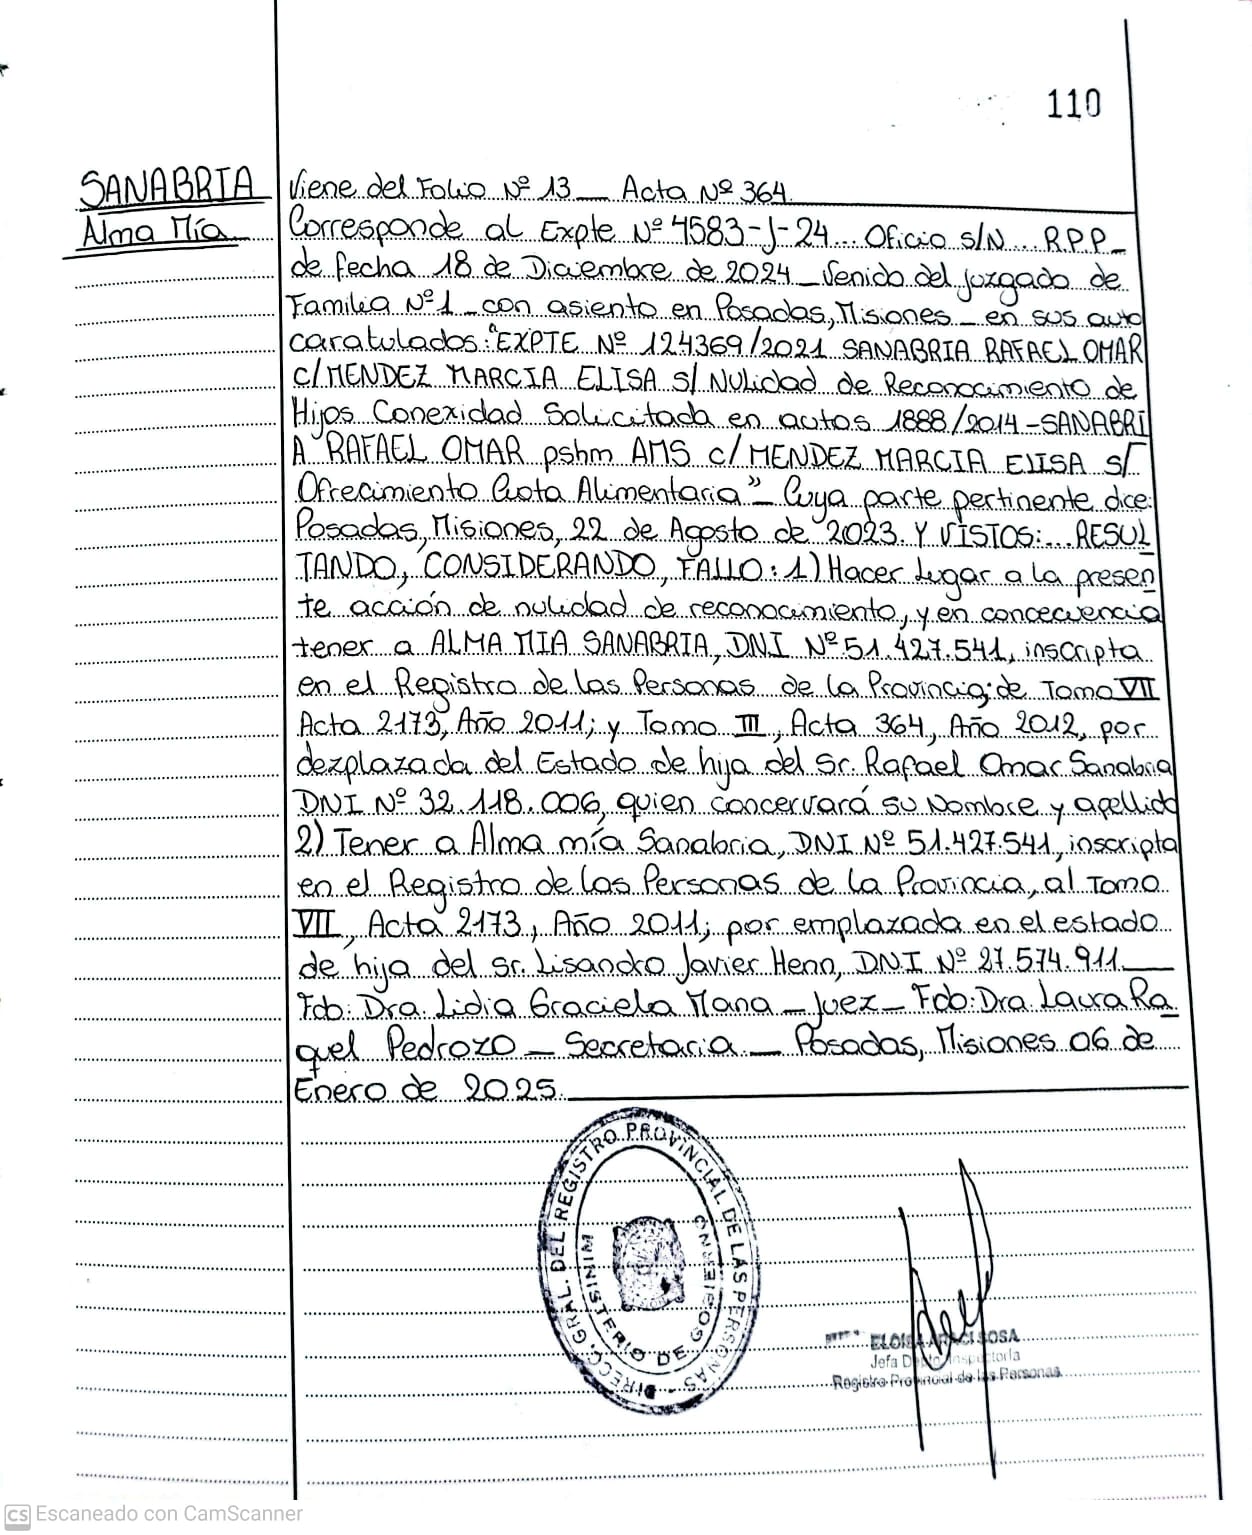 110
SANABRIA
Alma Mía
Viene del Folio Nº 13 _ Acta Nº 364
Corresponde al Expte Nº 4583-J-24... Oficio S/N... R.P.P_
de fecha 18 de Diciembre de 2024_ Venido del juzgado de
Familia Nº1_ con asiento en Posadas, Misiones_ en sus auto
caratulados: "EXPTE Nº 124369/2021 SANABRIA RAFAEL OMAR
c/ MENDEZ MARCIA ELISA s/ Nulidad de Reconocimiento de
Hijos Conexidad Solicitada en autos 1888/2014-SANABRI
A RAFAEL OMAR pshm AMS c/ MENDEZ MARCIA ELISA s/
Ofrecimiento Cuota Alimentaria"_ Cuya parte pertinente dice:
Posadas, Misiones, 22 de Agosto de 2023. Y VISTOS:... RESUL
TANDO, CONSIDERANDO, FALLO: 1) Hacer Lugar a la presen
te acción de nulidad de reconocimiento, y en concecuencia
tener a ALMA MIA SANABRIA, DNI Nº 51.427.541, inscripta
en el Registro de las Personas de la Provincia; de Tomo VII
Acta 2173, Año 2011; y Tomo III, Acta 364, Año 2012, por
dezplazada del Estado de hija del Sr. Rafael Omar Sanabria
DNI Nº 32.118.006, quien concervará su Nombre y apellido
2) Tener a Alma mía Sanabria, DNI Nº 51.427.541, inscripta
en el Registro de las Personas de la Provincia, al Tomo
VII, Acta 2173, Año 2011; por emplazada en el estado
de hija del sr. Lisandro Javier Henn, DNI Nº 27.574.911.
Fdo: Dra. Lidia Graciela Mana _ Juez _ Fdo: Dra. Laura Ra
quel Pedrozo _ Secretaria _ Posadas, Misiones 06 de
Enero de 2025.
DIRECC. GRAL. DEL REGISTRO PROVINCIAL DE LAS PERSONAS
MINISTERIO DE GOBIERNO
SOSA
Jefa Inspectoría
Registro Provincial de las Personas
CS Escaneado con CamScanner